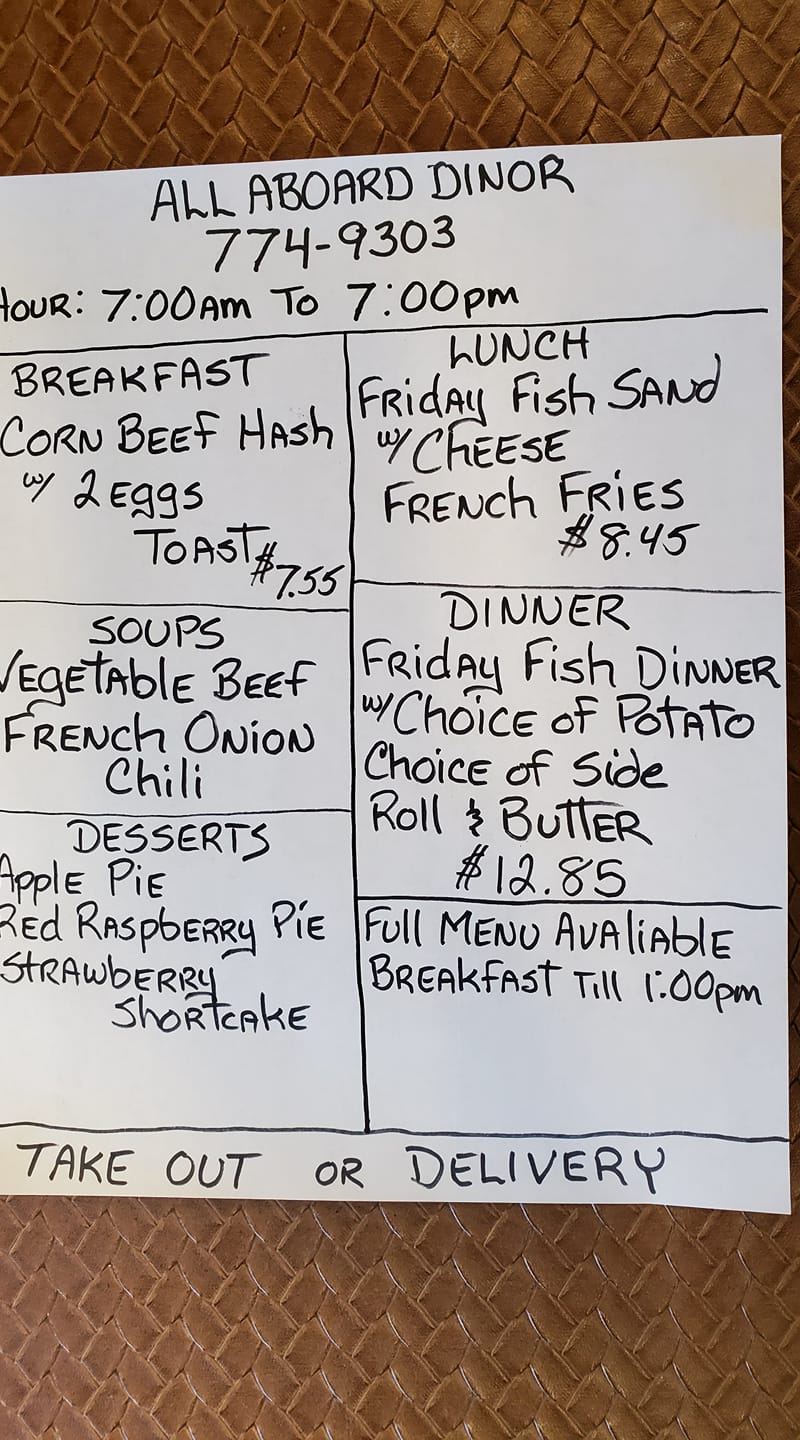 ALL ABOARD DINOR
774-9303
HOUR: 7:00AM TO 7:00PM
BREAKFAST
CORN BEEF HASH
w/ 2 EGGS
TOAST $7.55
SOUPS
VEGETABLE BEEF
FRENCH ONION
CHILI
DESSERTS
APPLE PIE
RED RASPBERRY PIE
STRAWBERRY
SHORTCAKE
LUNCH
FRIDAY FISH SAND
w/ CHEESE
FRENCH FRIES
$8.45
DINNER
FRIDAY FISH DINNER
w/ CHOICE OF POTATO
CHOICE OF SIDE
ROLL & BUTTER
$12.85
FULL MENU AVALIABLE
BREAKFAST TILL 1:00PM
TAKE OUT OR DELIVERY